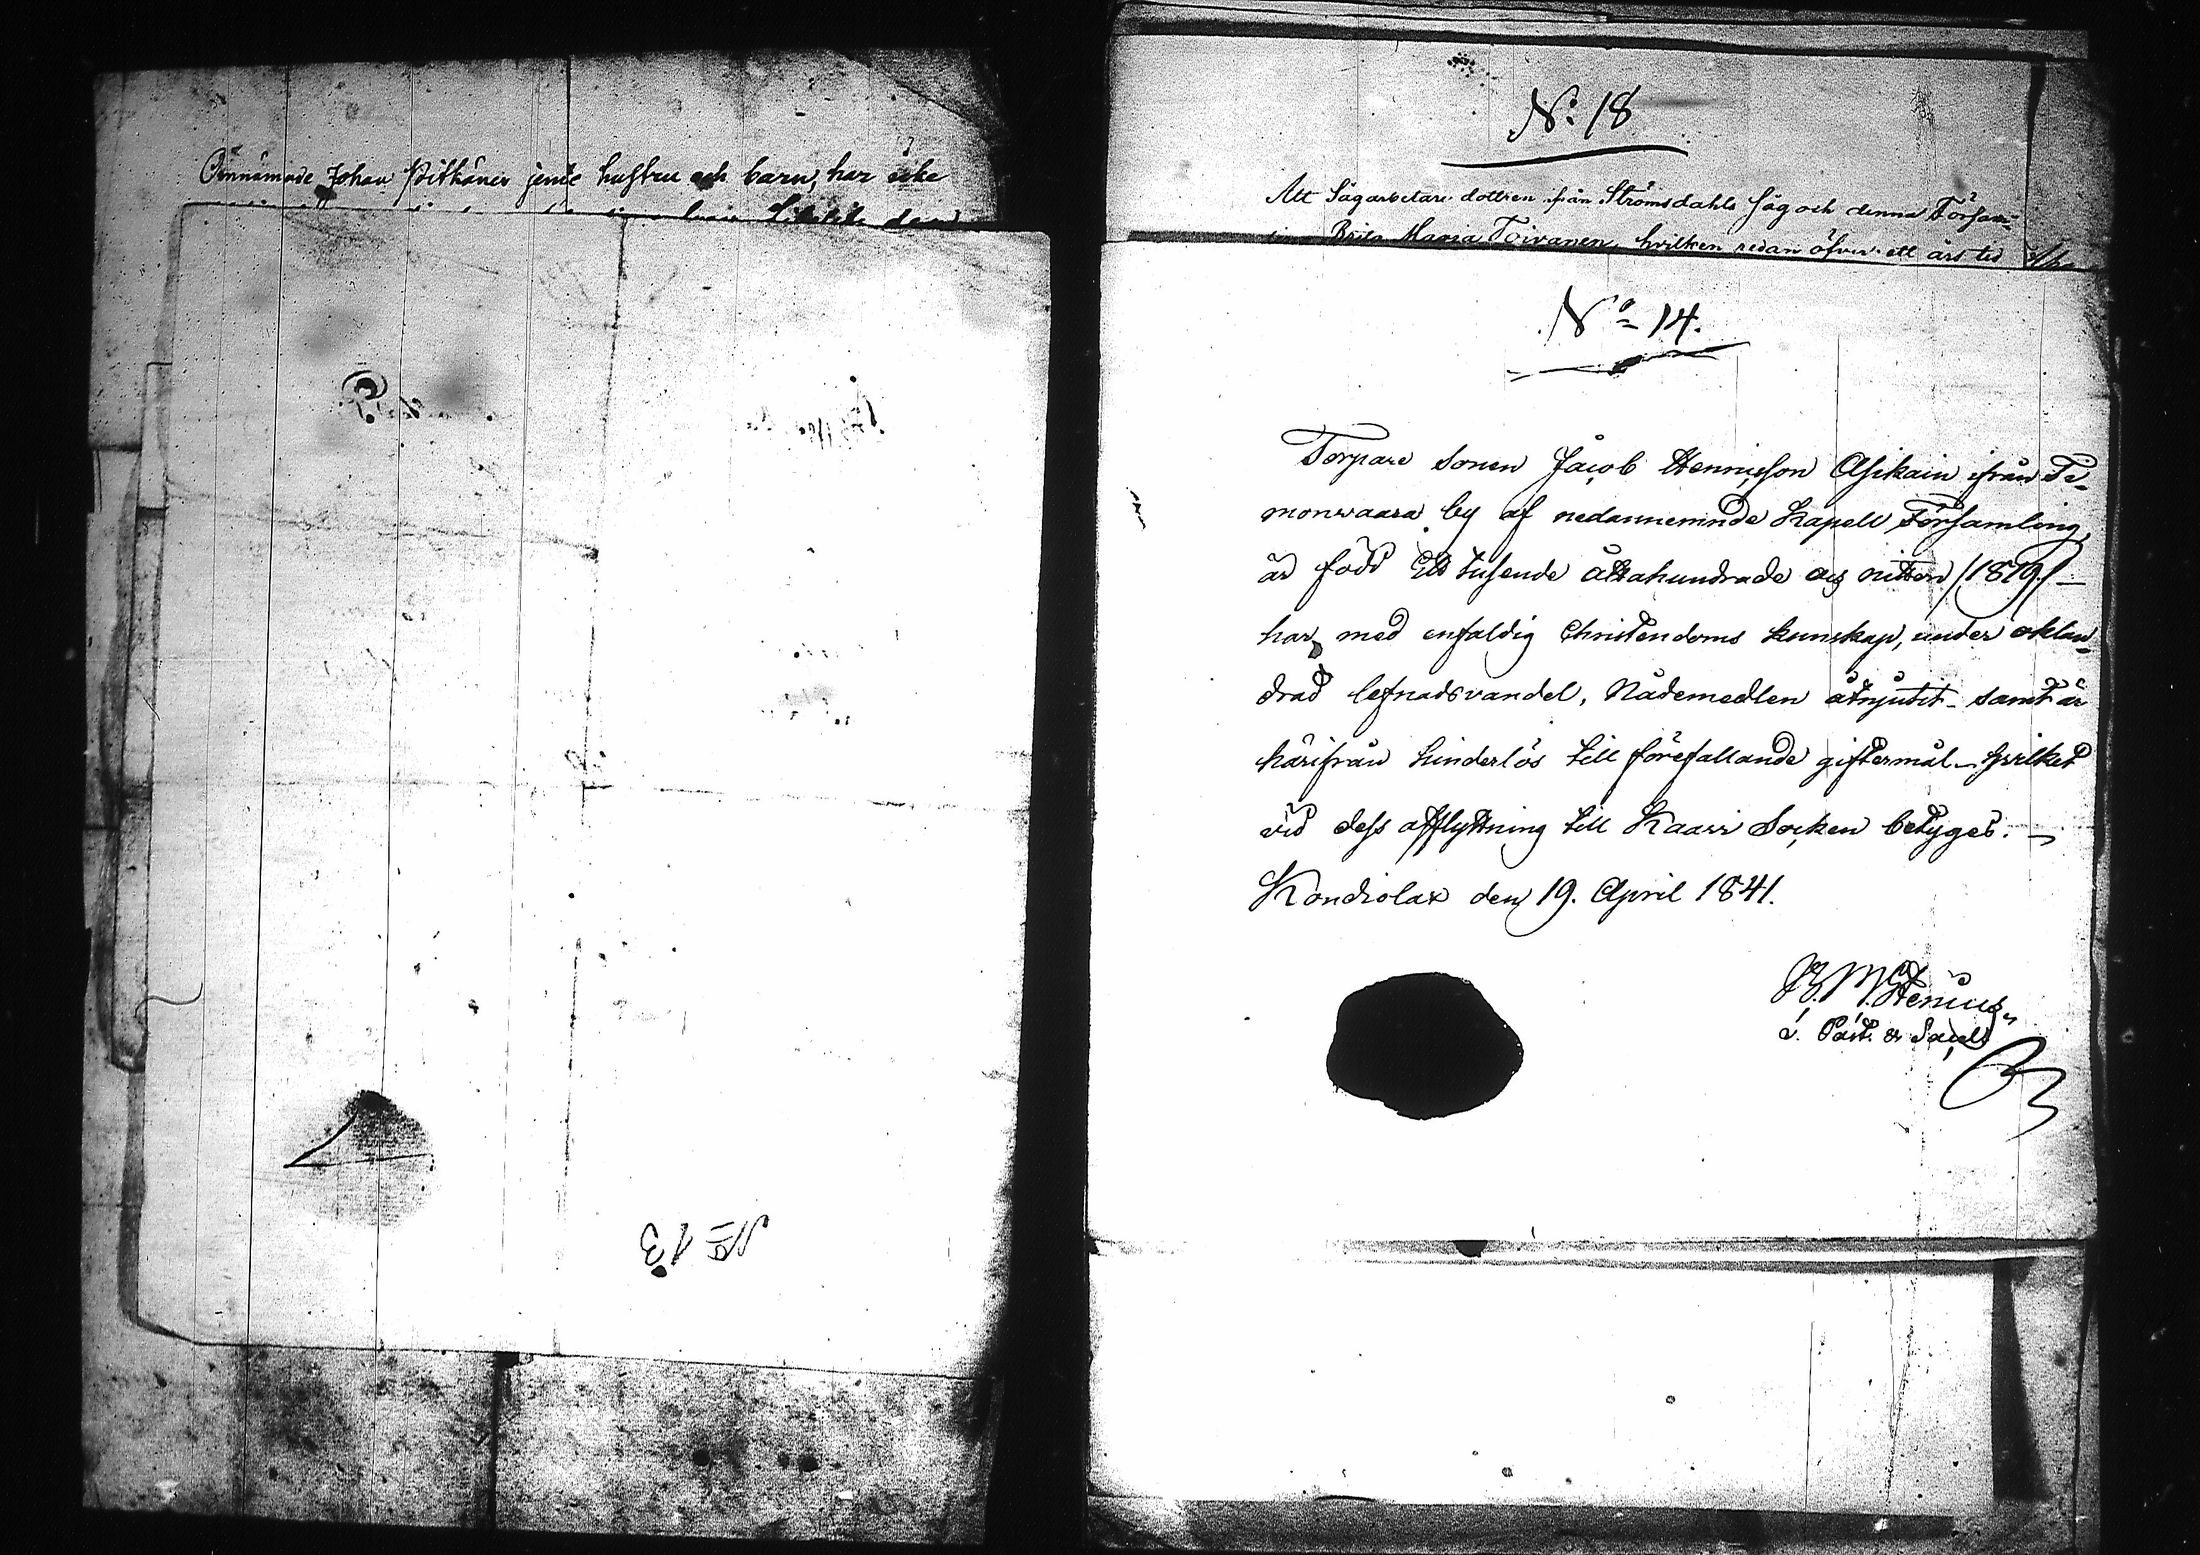 Ofvannämnde Johan Pitkänen jemte hustru och barn, har icke
№ 13
№ 18
Att Sågarbetare dottren från Strömsdahls Såg och denna Församl=
Brita Maria Toivanen, hvilken redan öfver ett års tid
№ 14.
Torpare sonen Jacob Henricsson Asikain ifrån Te=
monwaara by af nedannemnde Kapell Församling,
är född Ett tusende åttahundrade och nitton /1819/ —
har, med enfaldig Christendoms kunskap, under oklan=
drad lefnadsvandel, Nådemedlen åtnjutit – samt är
härifrån hinderlös till förefallande giftermål – hvilket
vid dess afflyttning till Kaavi Socken betygas. —
Kondiolax den 19. April 1841.
Stenius,
v. Past. & Sacell